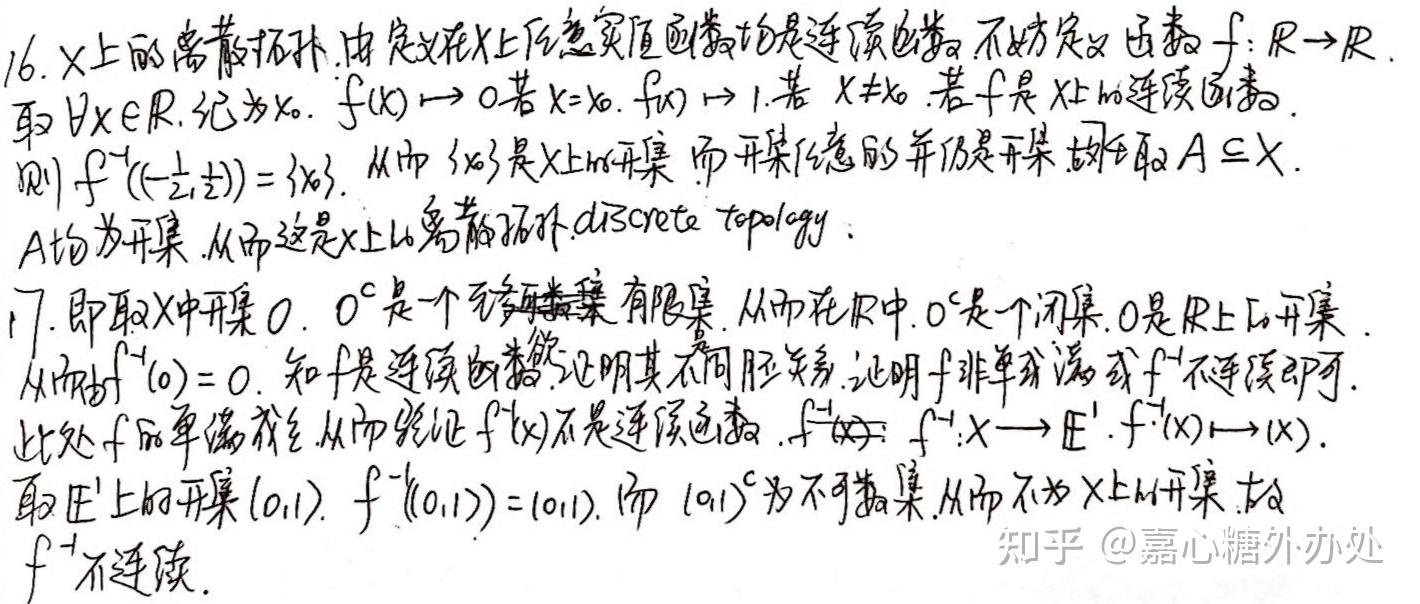 16. X上的离散拓扑.由定义在X上任意实值函数均是连续函数.不妨定义函数 f: ℝ→ℝ.
取∀x∈ℝ.记为x₀. f(x)↦0若x=x₀. f(x)↦1.若 x≠x₀.若f是X上的连续函数.
则 f⁻¹((-1/2,1/2))={x₀}. 从而{x₀}是X上的开集.而开集任意的并仍是开集.故任取A⊆X.
A均为开集.从而这是X上的离散拓扑.discrete topology.
17.即取X中开集O. Oᶜ是一个有限集.从而在ℝ中.Oᶜ是一个闭集.O是ℝ上的开集.
从而由f⁻¹(O)=O. 知f是连续函数.欲证明其不是同胚关系.证明f非单或满或f⁻¹不连续即可.
此处f的单满成立.从而验证f⁻¹(x)不是连续函数. f⁻¹(x): f⁻¹:X→𝔼¹. f⁻¹(x)↦(x).
取𝔼¹上的开集(0,1). f⁻¹((0,1))=(0,1).而 (0,1)ᶜ为不可数集.从而不为X上的开集.故
f⁻¹不连续.
知乎 @嘉心糖外办处